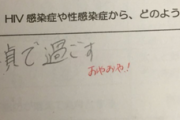 HIV 感染症や性感染症から、どのよう
貞で過ごす
おやおや!